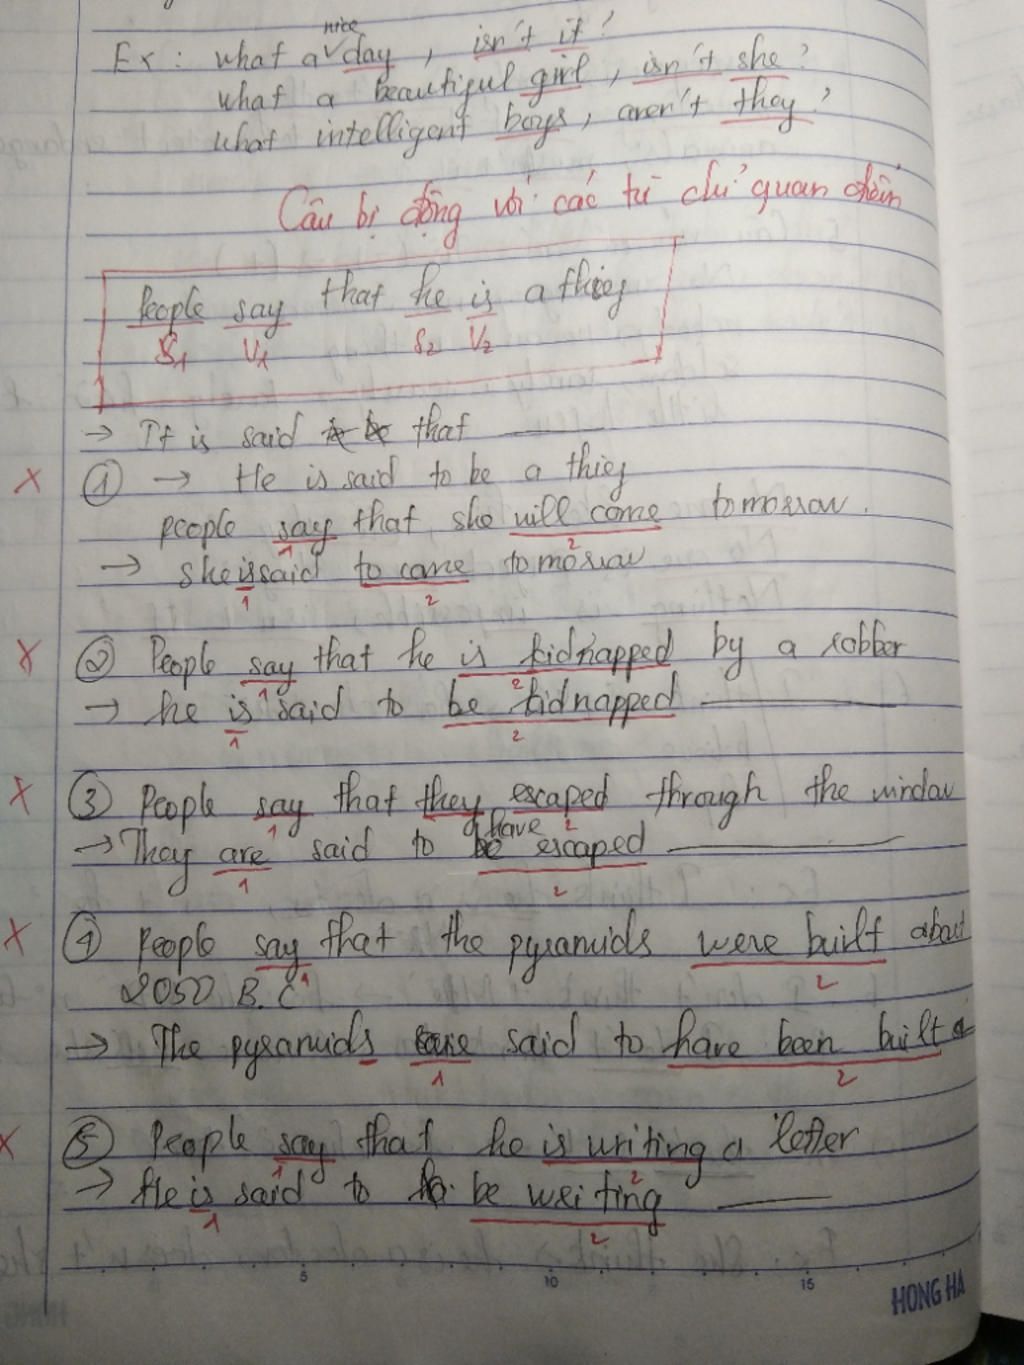 Ex: what a nice day, isn't it?
what a beautiful girl, isn't she?
what intelligent boys, aren't they?
Câu bị động với các từ chỉ quan điểm
People say that he is a thief
S1 V1 S2 V2
→ It is said that
X ① → He is said to be a thief
people say that she will come tomorrow.
1 2
→ she is said to come tomorrow
1 2
X ② People say that he is kidnapped by a robber
1 2
→ he is said to be kidnapped
1 2
X ③ People say that they escaped through the window
1 2
→ They are said to have escaped
1 2
X ④ People say that the pyramids were built about
1 2
2050 B.C
→ The pyramids are said to have been built
1 2
X ⑤ People say that he is writing a letter
1 2
→ He is said to be writing
1 2
5 10 15
HONG HA